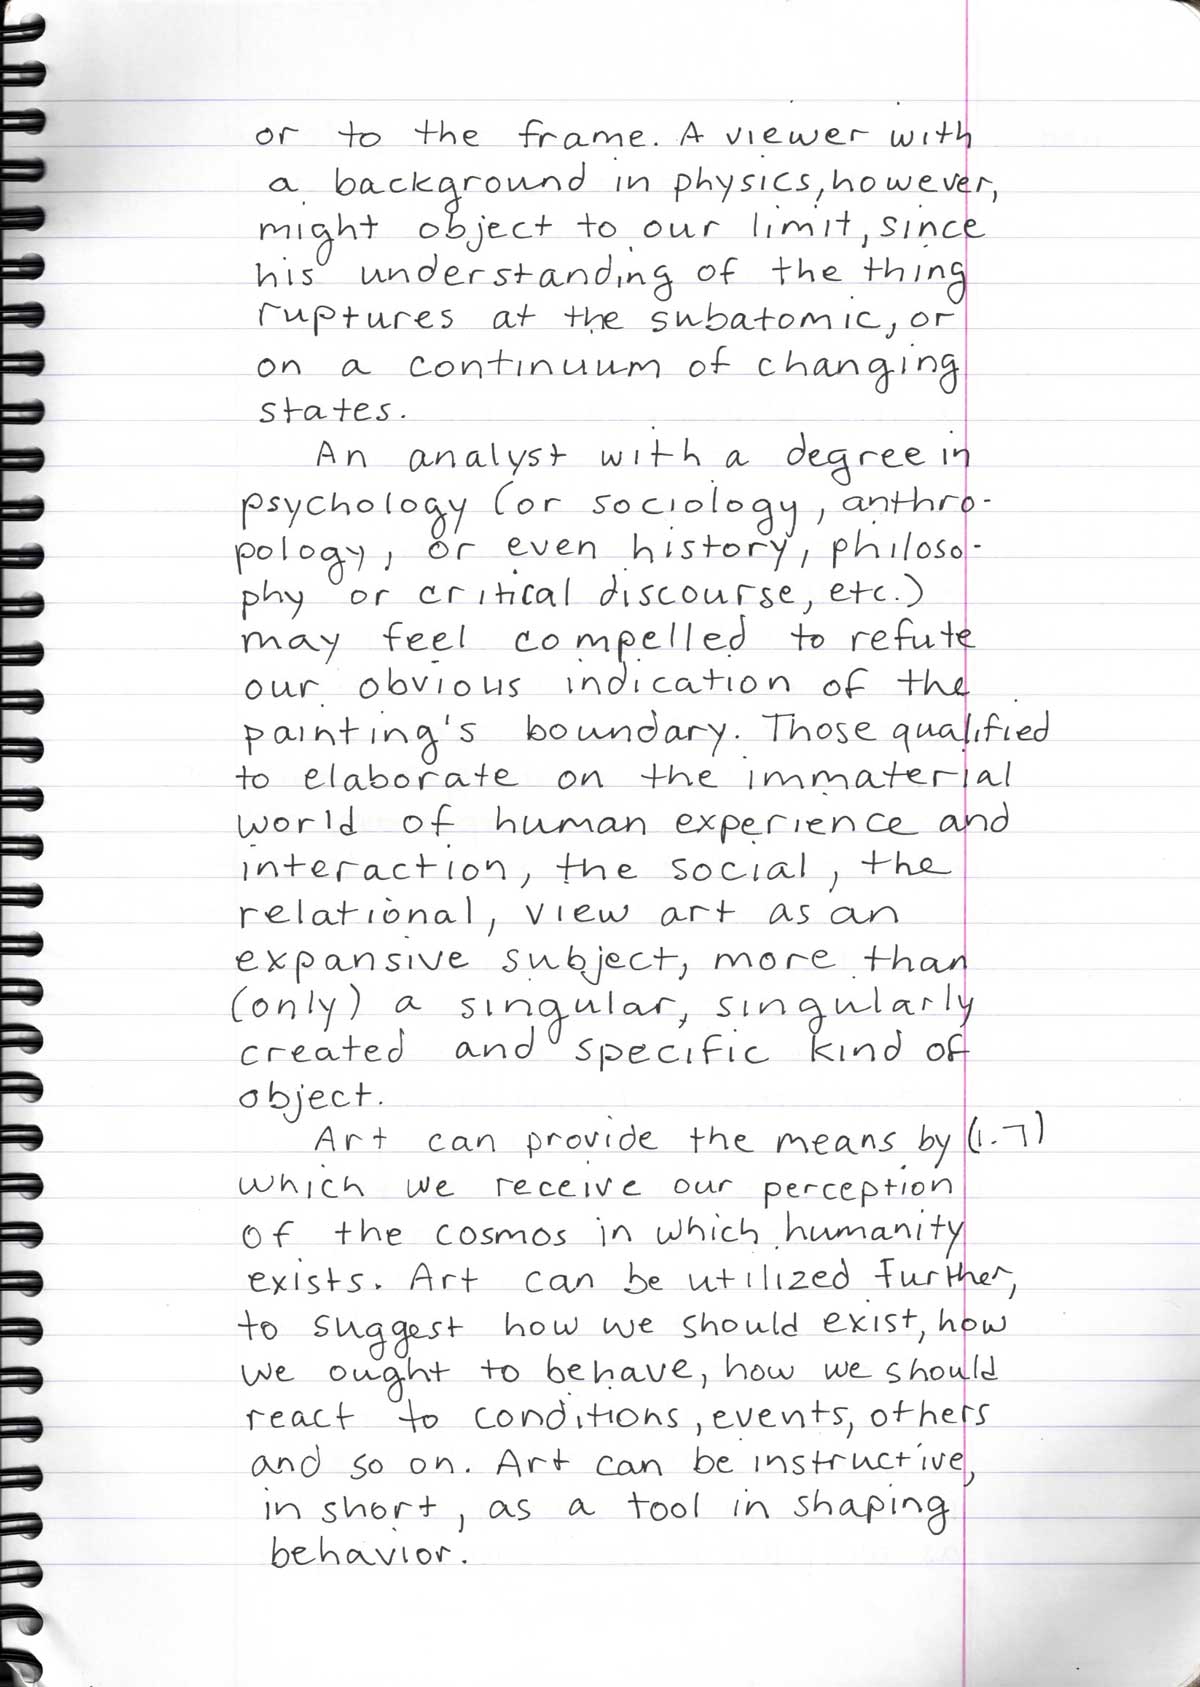 or to the frame. A viewer with
a background in physics, however,
might object to our limit, since
his understanding of the thing
ruptures at the subatomic, or
on a continuum of changing
states.
An analyst with a degree in
psychology (or sociology, anthro-
pology, or even history, philoso-
phy or critical discourse, etc.)
may feel compelled to refute
our obvious indication of the
painting's boundary. Those qualified
to elaborate on the immaterial
world of human experience and
interaction, the social, the
relational, view art as an
expansive subject, more than
(only) a singular, singularly
created and specific kind of
object.
Art can provide the means by (1.7)
which we receive our perception
of the cosmos in which humanity
exists. Art can be utilized further,
to suggest how we should exist, how
we ought to behave, how we should
react to conditions, events, others
and so on. Art can be instructive,
in short, as a tool in shaping
behavior.